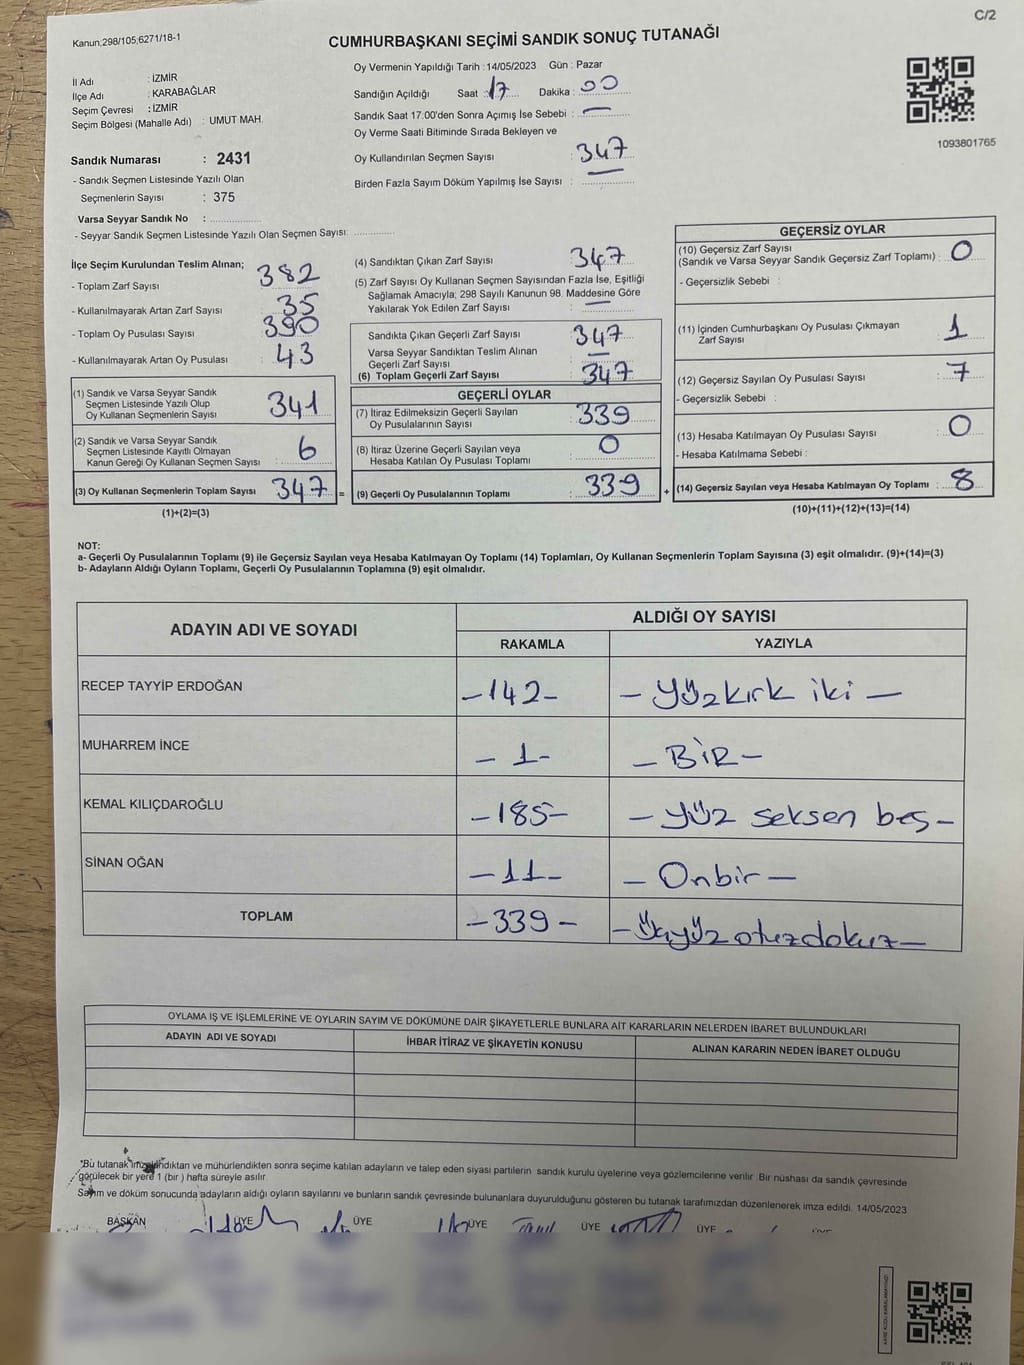 C/2
Kanun;298/105;6271/18-1
CUMHURBAŞKANI SEÇİMİ SANDIK SONUÇ TUTANAĞI
İl Adı : İZMİR
İlçe Adı : KARABAĞLAR
Seçim Çevresi : İZMİR
Seçim Bölgesi (Mahalle Adı) : UMUT MAH.
Sandık Numarası : 2431
- Sandık Seçmen Listesinde Yazılı Olan
Seçmenlerin Sayısı : 375
Varsa Seyyar Sandık No :
- Seyyar Sandık Seçmen Listesinde Yazılı Olan Seçmen Sayısı:
Oy Vermenin Yapıldığı Tarih : 14/05/2023 Gün : Pazar
Sandığın Açıldığı Saat : 17 Dakika : 00
Sandık Saat 17.00'den Sonra Açımış İse Sebebi : —
Oy Verme Saati Bitiminde Sırada Bekleyen ve
Oy Kullandırılan Seçmen Sayısı : 347
Birden Fazla Sayım Döküm Yapılmış İse Sayısı : —
1093801765
İlçe Seçim Kurulundan Teslim Alınan;
- Toplam Zarf Sayısı : 382
- Kullanılmayarak Artan Zarf Sayısı : 35
- Toplam Oy Pusulası Sayısı : 390
- Kullanılmayarak Artan Oy Pusulası : 43
(1) Sandık ve Varsa Seyyar Sandık
Seçmen Listesinde Yazılı Olup
Oy Kullanan Seçmenlerin Sayısı : 341
(2) Sandık ve Varsa Seyyar Sandık
Seçmen Listesinde Kayıtlı Olmayan
Kanun Gereği Oy Kullanan Seçmen Sayısı : 6
(3) Oy Kullanan Seçmenlerin Toplam Sayısı : 347 =
(1)+(2)=(3)
(4) Sandıktan Çıkan Zarf Sayısı : 347
(5) Zarf Sayısı Oy Kullanan Seçmen Sayısından Fazla İse, Eşitliği
Sağlamak Amacıyla; 298 Sayılı Kanunun 98. Maddesine Göre
Yakılarak Yok Edilen Zarf Sayısı : —
Sandıkta Çıkan Geçerli Zarf Sayısı : 347
Varsa Seyyar Sandıktan Teslim Alınan
Geçerli Zarf Sayısı : —
(6) Toplam Geçerli Zarf Sayısı : 347
GEÇERLİ OYLAR
(7) İtiraz Edilmeksizin Geçerli Sayılan
Oy Pusulalarının Sayısı : 339
(8) İtiraz Üzerine Geçerli Sayılan veya
Hesaba Katılan Oy Pusulası Toplamı : 0
(9) Geçerli Oy Pusulalarının Toplamı : 339 +
GEÇERSİZ OYLAR
(10) Geçersiz Zarf Sayısı
(Sandık ve Varsa Seyyar Sandık Geçersiz Zarf Toplamı) : 0
- Geçersizlik Sebebi :
(11) İçinden Cumhurbaşkanı Oy Pusulası Çıkmayan
Zarf Sayısı : 1
(12) Geçersiz Sayılan Oy Pusulası Sayısı : 7
- Geçersizlik Sebebi :
(13) Hesaba Katılmayan Oy Pusulası Sayısı : 0
- Hesaba Katılmama Sebebi :
(14) Geçersiz Sayılan veya Hesaba Katılmayan Oy Toplamı : 8
(10)+(11)+(12)+(13)=(14)
NOT:
a- Geçerli Oy Pusulalarının Toplamı (9) ile Geçersiz Sayılan veya Hesaba Katılmayan Oy Toplamı (14) Toplamları, Oy Kullanan Seçmenlerin Toplam Sayısına (3) eşit olmalıdır. (9)+(14)=(3)
b- Adayların Aldığı Oyların Toplamı, Geçerli Oy Pusulalarının Toplamına (9) eşit olmalıdır.
ADAYIN ADI VE SOYADI ALDIĞI OY SAYISI
RAKAMLA YAZIYLA
RECEP TAYYİP ERDOĞAN -142- - Yüzkırk iki -
MUHARREM İNCE - 1 - - BİR -
KEMAL KILIÇDAROĞLU -185- - Yüz seksen beş -
SİNAN OĞAN -11- - Onbir -
TOPLAM -339- - Üçyüz otuzdokuz -
OYLAMA İŞ VE İŞLEMLERİNE VE OYLARIN SAYIM VE DÖKÜMÜNE DAİR ŞİKAYETLERLE BUNLARA AİT KARARLARIN NELERDEN İBARET BULUNDUKLARI
ADAYIN ADI VE SOYADI İHBAR İTİRAZ VE ŞİKAYETİN KONUSU ALINAN KARARIN NEDEN İBARET OLDUĞU
*Bu tutanak imzalandıktan ve mühürlendikten sonra seçime katılan adayların ve talep eden siyasi partilerin sandık kurulu üyelerine veya gözlemcilerine verilir. Bir nüshası da sandık çevresinde
görülecek bir yere 1 (bir) hafta süreyle asılır.
Sayım ve döküm sonucunda adayların aldığı oyların sayılarını ve bunların sandık çevresinde bulunanlara duyurulduğunu gösteren bu tutanak tarafımızdan düzenlenerek imza edildi. 14/05/2023
BAŞKAN ÜYE ÜYE ÜYE ÜYE ÜYE